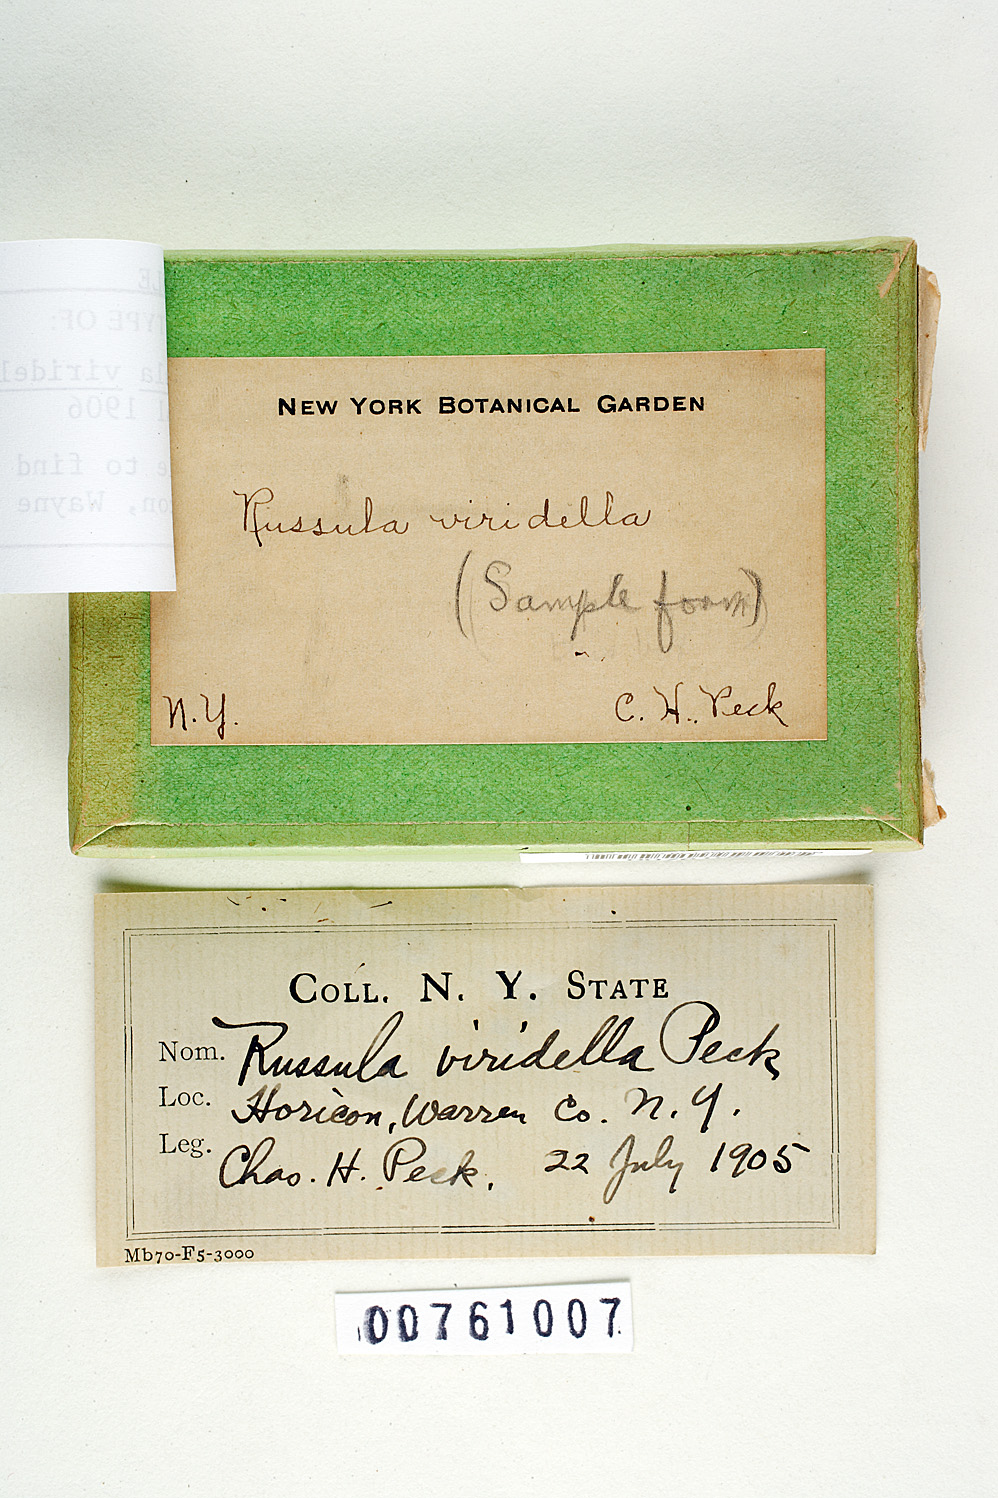 NEW YORK BOTANICAL GARDEN
Russula viridella
(Sample form)
N.Y.
C. H. Peck
COLL. N. Y. STATE
Nom. Russula viridella Peck
Loc. Horicon, Warren Co. N. Y.
Leg. Chas. H. Peck. 22 July 1905
Mb70-F5-3000
00761007